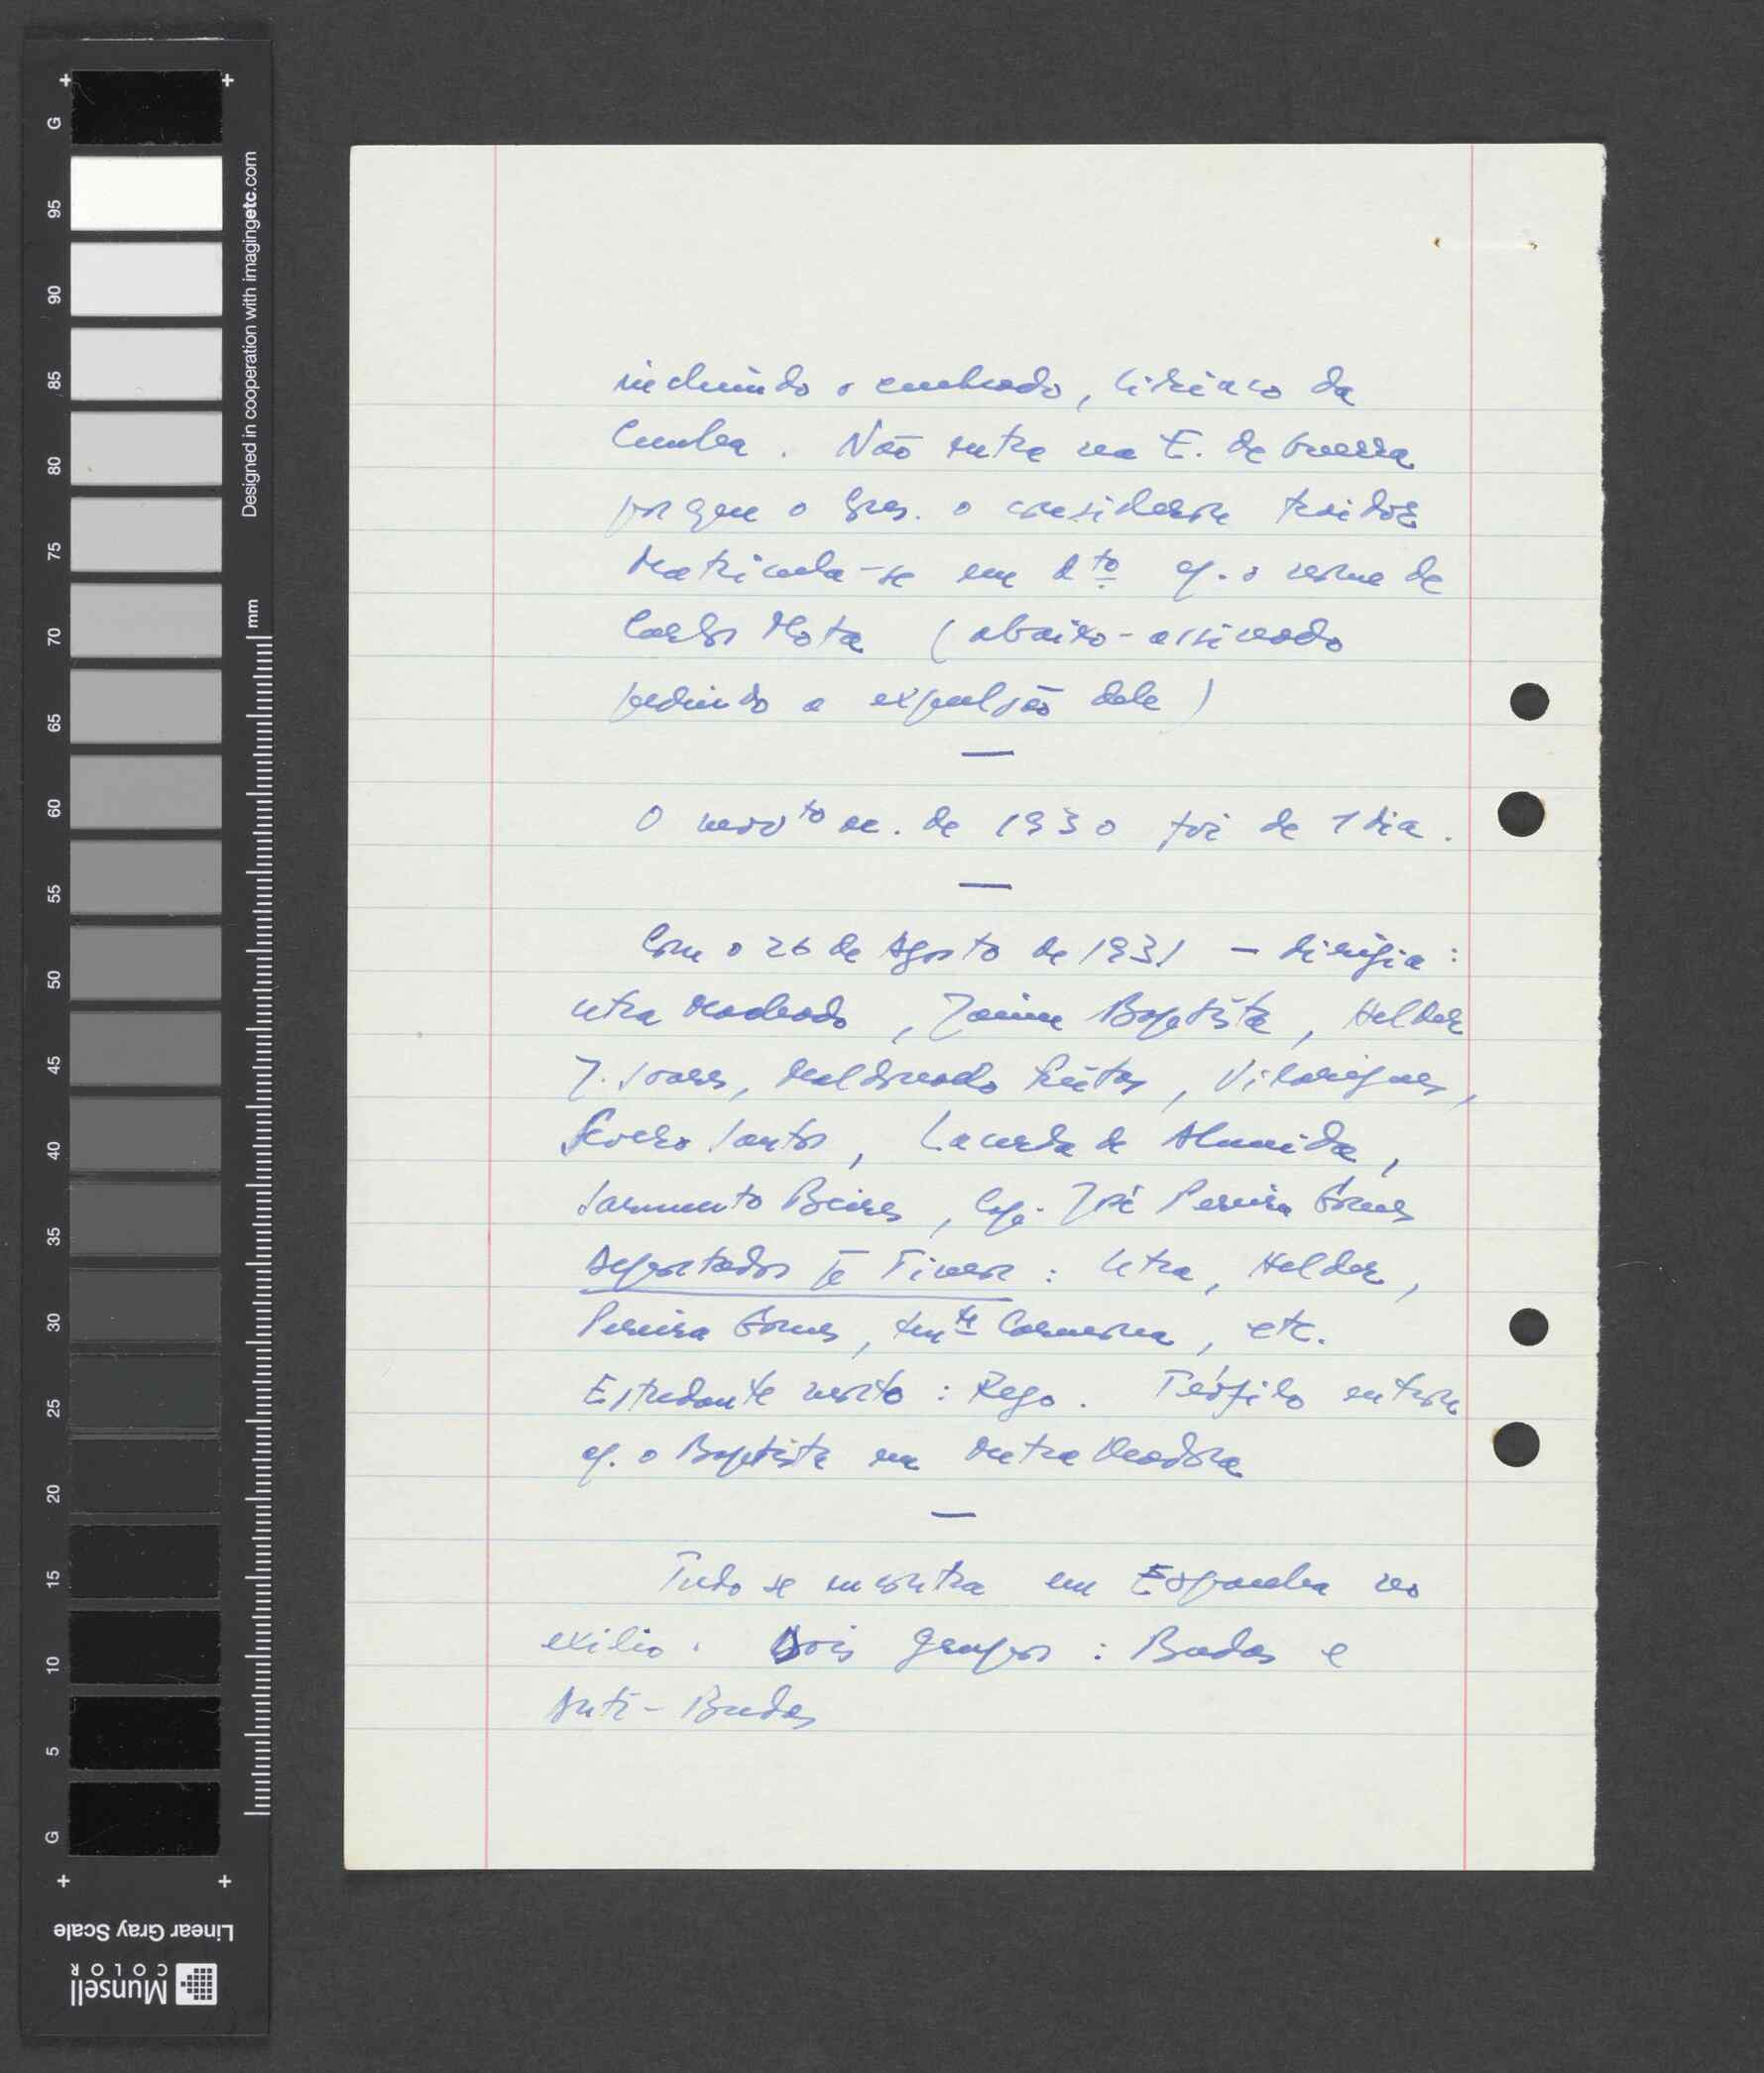 G
95
90
85
80
75
70
65
60
55
50
45
40
35
30
25
20
15
10
5
G
Designed in cooperation with imagingetc.com
mm
Linear Gray Scale
Munsell
COLOR
incluindo o cunhado, Ciríaco da
Cunha. Não entra na E. de Guerra
porque o Gov. o considerou traidor
Matricula-se em dto q. o nome de
Carlos Mota (abaixo-assinado
pedindo a expulsão dele)
—
O movto rev. de 1930 foi de 1 dia.
—
Com o 26 de Agosto de 1931 – dirigia:
Utra Machado, Jaime Baptista, Helder
J. Soares, Maldonado Freitas, Vilarigues,
Severo Santos, Lacerda de Almeida,
Sarmento Beires, Cap. José Pereira Gomes
Deportados p/ Timor: Utra, Helder,
Pereira Gomes, tente Carmona, etc.
Estudante morto: Rego. Teófilo entrou
q. o Baptista na Metralhadora
—
Tudo se encontra em Espanha no
exílio. Dois grupos: Budas e
Anti-Budas